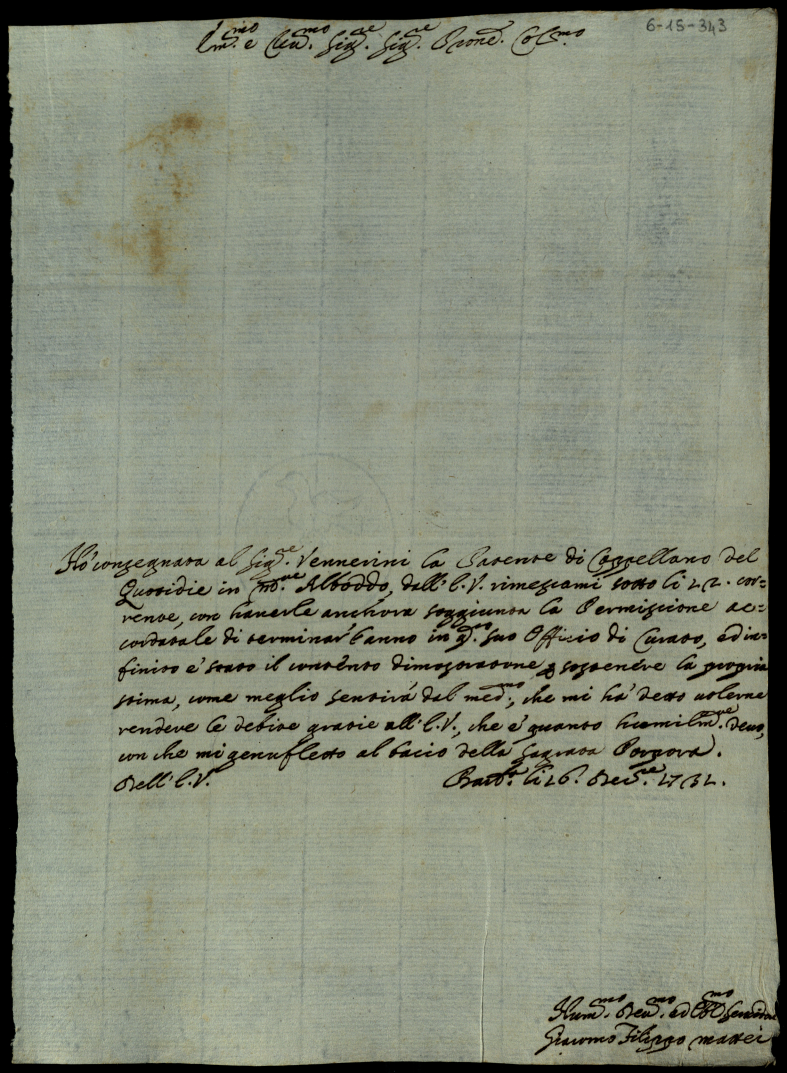 6-15-343
Em.mo e Rev.mo Sig.re Sig.re Prone. Col.mo
Hò consegnata al Sig.re Vennerini la Patente di Cappellano del
Quotidie in Alboddo, dall'E.V. rimessami sotto li 22. cor=
rente, con haverle anchora soggiunta la Permissione ac=
cordatale di terminar l'anno in q.to suo Officio di Curato, ed in=
finito è stato il contento dimostratone, p sostenere la propria
stima, come meglio sentirà dal med.mo, che mi hà detto volerne
rendere le debite gratie all'E.V., che è quanto humilm.te devo,
con che mi genufletto al bacio della Sagrata Porpora.
Dell'E.V. Barb.a li 26. Dec.re 1732.
Hum.mo Dev.mo ed Obl.mo Servidore
Giacomo Filippo Mattei